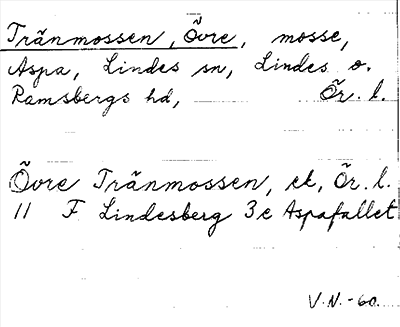 Tränmossen, Övre, mosse,
Aspa, Lindes sn, Lindes o.
Ramsbergs hd, Ör. l.
Övre Tränmossen, ek, Ör. l.
11 F Lindesberg 3c Aspafallet
V.N.-60.